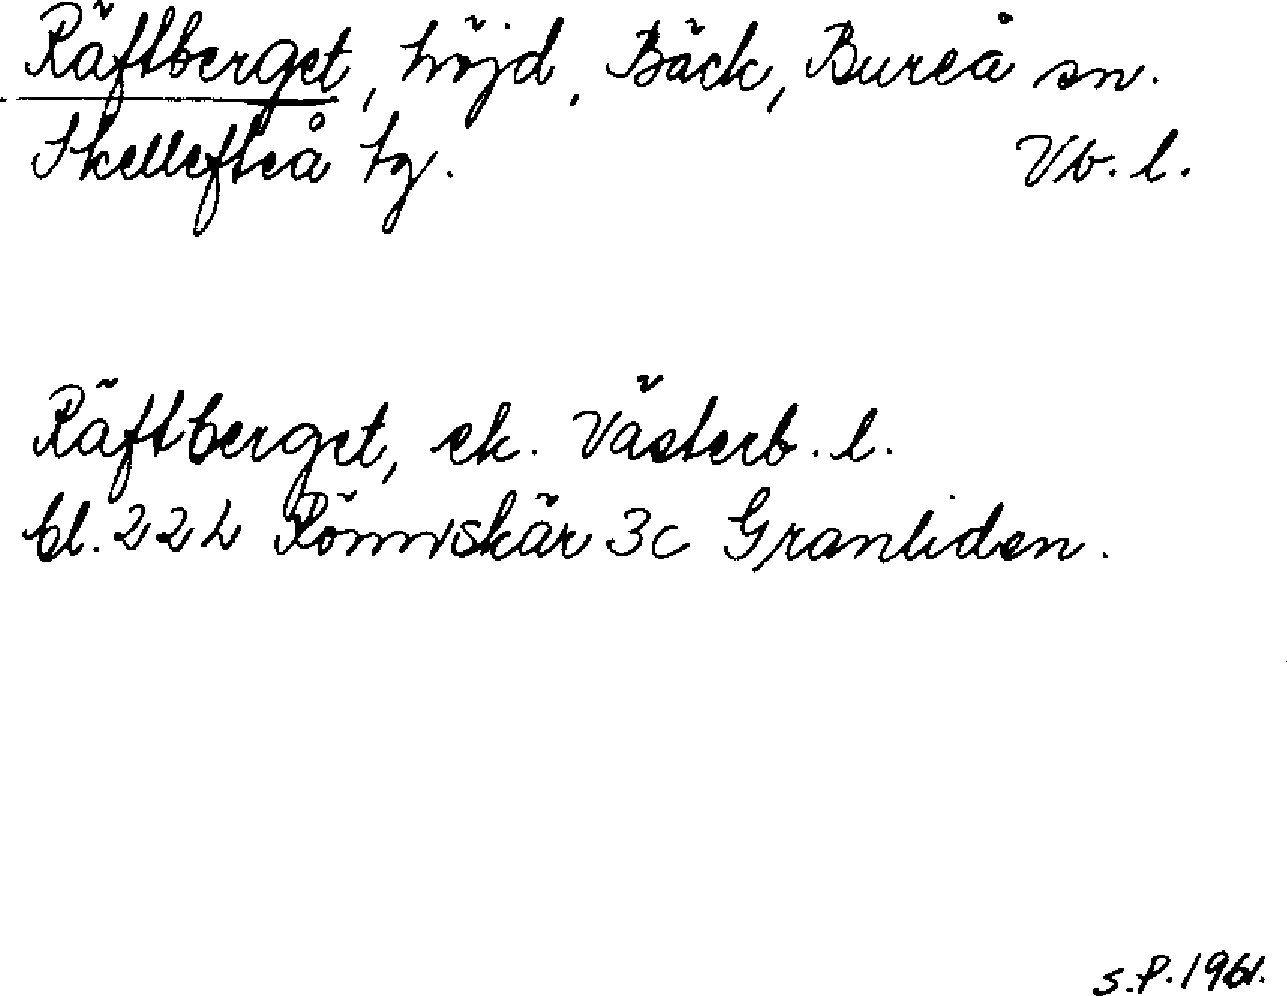 Räftberget, höjd, Bäck, Bureå sn.
Skellefteå tg. Vb. l.
Räftberget, ek. Västerb. l.
bl. 22 L Rönnskär 3c Granliden.
S.P. 1961.